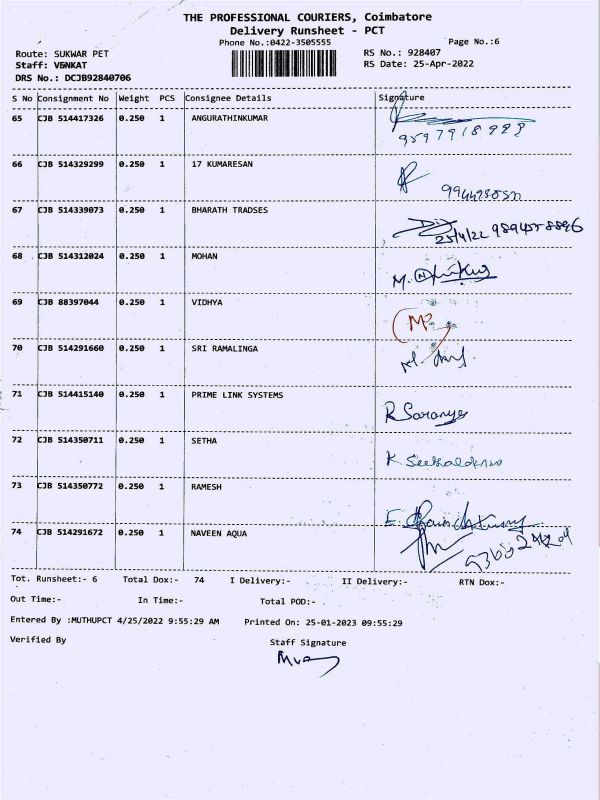 THE PROFESSIONAL COURIERS, Coimbatore
Delivery Runsheet - PCT
Phone No.:0422-3505555 Page No.:6
Route: SUKWAR PET RS No.: 928407
Staff: VENKAT RS Date: 25-Apr-2022
DRS No.: DCJB92840706
S No Consignment No Weight PCS Consignee Details Signature
65 CJB 514417326 0.250 1 ANGURATHINKUMAR
66 CJB 514329299 0.250 1 17 KUMARESAN
67 CJB 514339073 0.250 1 BHARATH TRADSES
25/4/22
68 CJB 514312024 0.250 1 MOHAN
69 CJB 88397044 0.250 1 VIDHYA
70 CJB 514291660 0.250 1 SRI RAMALINGA
71 CJB 514415140 0.250 1 PRIME LINK SYSTEMS
R Saranya
72 CJB 514350711 0.250 1 SETHA
73 CJB 514350772 0.250 1 RAMESH
74 CJB 514291672 0.250 1 NAVEEN AQUA
Tot. Runsheet:- 6 Total Dox:- 74 I Delivery:- II Delivery:- RTN Dox:-
Out Time:- In Time:- Total POD:-
Entered By :MUTHUPCT 4/25/2022 9:55:29 AM Printed On: 25-01-2023 09:55:29
Verified By Staff Signature